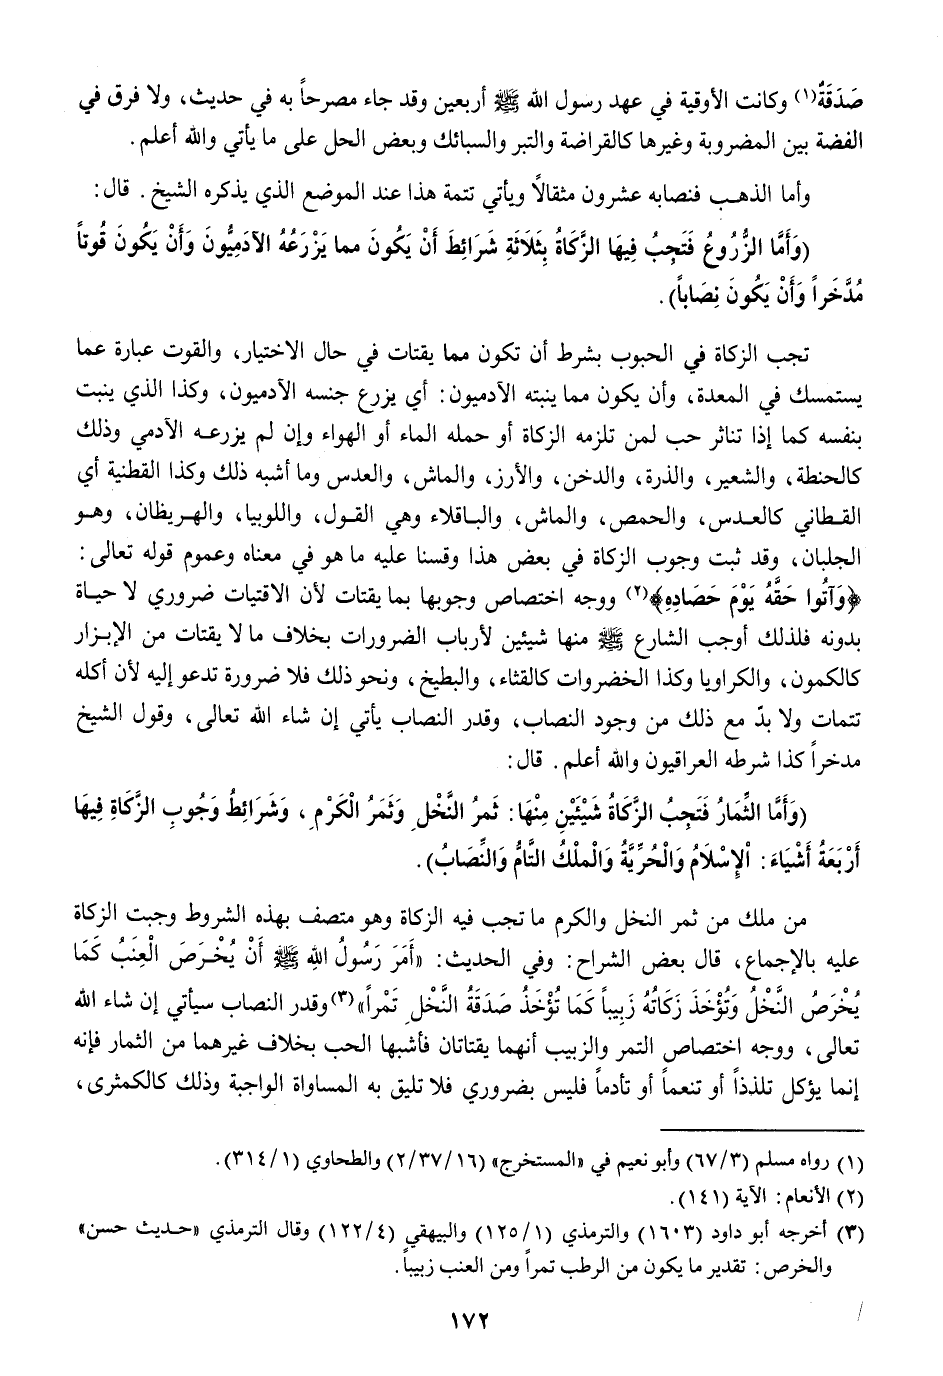 صَدَقَةٌ(١) وكانت الأوقية في عهد رسول الله ﷺ أربعين وقد جاء مصرحاً به في حديث، ولا فرق في
الفضة بين المضروبة وغيرها كالقراضة والتبر والسبائك وبعض الحل على ما يأتي والله أعلم.
وأما الذهب فنصابه عشرون مثقالاً ويأتي تتمة هذا عند الموضع الذي يذكره الشيخ. قال:
(وَأَمَّا الزُّرُوعُ فَتَجِبُ فِيهَا الزَّكَاةُ بِثَلَاثَةِ شَرَائِطَ أَنْ يَكُونَ مما يَزْرَعُهُ الآدَمِيُّونَ وَأَنْ يَكُونَ قُوتاً
مُدَّخَراً وَأَنْ يَكُونَ نِصَاباً).
تجب الزكاة في الحبوب بشرط أن تكون مما يقتات في حال الاختيار، والقوت عبارة عما
يستمسك في المعدة، وأن يكون مما ينبته الآدميون: أي يزرع جنسه الآدميون، وكذا الذي ينبت
بنفسه كما إذا تناثر حب لمن تلزمه الزكاة أو حمله الماء أو الهواء وإن لم يزرعه الآدمي وذلك
كالحنطة، والشعير، والذرة، والدخن، والأرز، والماش، والعدس وما أشبه ذلك وكذا القطنية أي
القطاني كالعدس، والحمص، والماش، والباقلاء وهي القول، واللوبيا، والهريظان، وهو
الجلبان، وقد ثبت وجوب الزكاة في بعض هذا وقسنا عليه ما هو في معناه وعموم قوله تعالى:
﴿وَآتُوا حَقَّهُ يَوْمَ حَصَادِهِ﴾(٢) ووجه اختصاص وجوبها بما يقتات لأن الاقتيات ضروري لا حياة
بدونه فلذلك أوجب الشارع ﷺ منها شيئين لأرباب الضرورات بخلاف ما لا يقتات من الإبزار
كالكمون، والكراويا وكذا الخضروات كالقثاء، والبطيخ، ونحو ذلك فلا ضرورة تدعو إليه لأن أكله
تتمات ولا بدّ مع ذلك من وجود النصاب، وقدر النصاب يأتي إن شاء الله تعالى، وقول الشيخ
مدخراً كذا شرطه العراقيون والله أعلم. قال:
(وَأَمَّا الثِّمَارُ فَتَجِبُ الزَّكَاةُ شَيْئَيْنِ مِنْهَا: ثَمرُ النَّخْلِ وَثَمَرُ الْكَرْمِ، وَشَرَائِطُ وَجُوبِ الزَّكَاةِ فِيهَا
أَرْبَعَةُ أَشْيَاءَ: اْلإِسْلَامُ وَالْحُرِّيَّةُ وَالْمِلْكُ التَّامُّ وَالنِّصَابُ).
من ملك من ثمر النخل والكرم ما تجب فيه الزكاة وهو متصف بهذه الشروط وجبت الزكاة
عليه بالإجماع، قال بعض الشراح: وفي الحديث: «أَمَرَ رَسُولُ اللهِ ﷺ أَنْ يُخْرَصَ الْعِنَبُ كَمَا
يُخْرَصُ النَّخْلُ وَتُؤْخَذَ زَكَاتُهُ زَبِيباً كَمَا تُؤْخَذُ صَدَقَةُ النَّخْلِ تَمْراً»(٣) وقدر النصاب سيأتي إن شاء الله
تعالى، ووجه اختصاص التمر والزبيب أنهما يقتاتان فأشبها الحب بخلاف غيرهما من الثمار فإنه
إنما يؤكل تلذذاً أو تنعماً أو تأدماً فليس بضروري فلا تليق به المساواة الواجبة وذلك كالكمثرى،
(١) رواه مسلم (٦٧/٣) وأبو نعيم في «المستخرج» (٢/٣٧/١٦) والطحاوي (٣١٤/١).
(٢) الأنعام: الآية (١٤١).
(٣) أخرجه أبو داود (١٦٠٣) والترمذي (١٢٥/١) والبيهقي (١٢٢/٤) وقال الترمذي «حديث حسن»
والخرص: تقدير ما يكون من الرطب تمراً ومن العنب زبيباً.
١٧٢